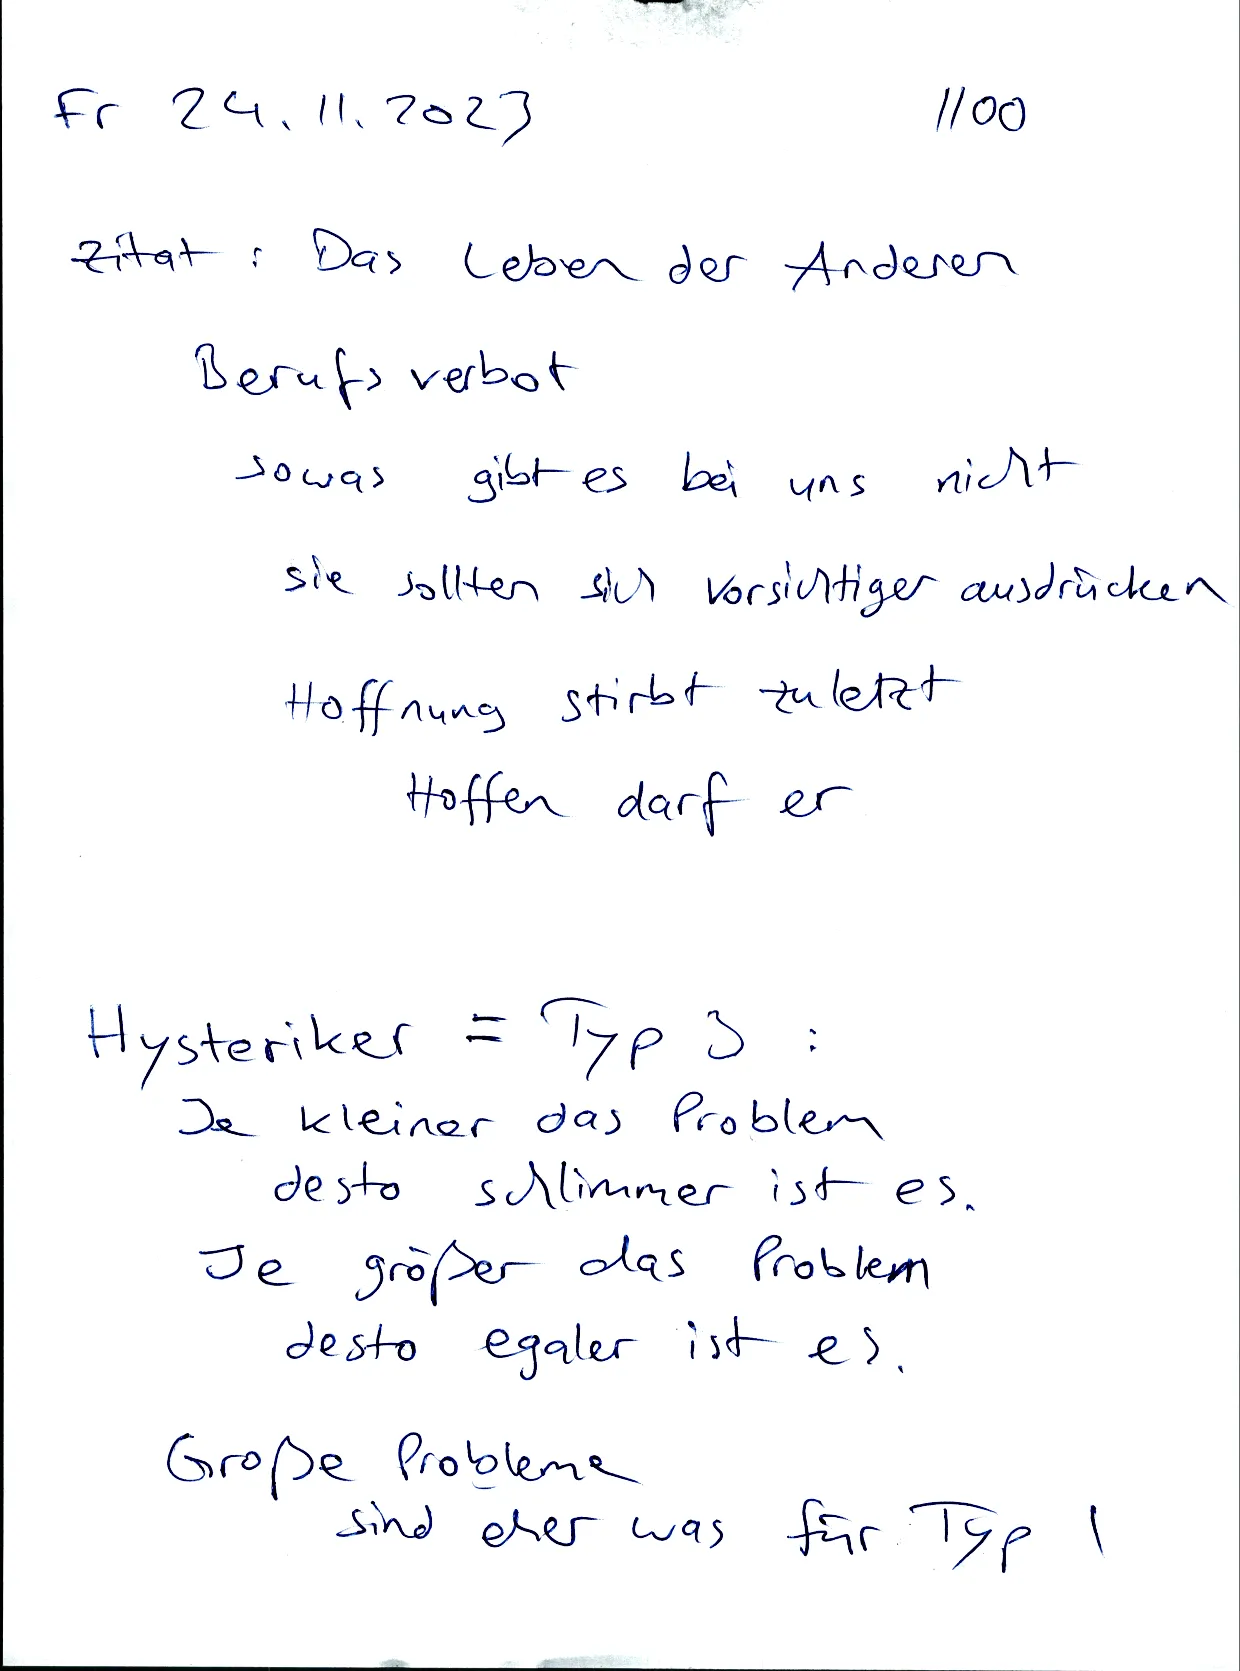 Fr 24.11.2023 1100
Zitat: Das Leben der Anderen
Berufsverbot
sowas gibt es bei uns nicht
sie sollten sich vorsichtiger ausdrücken
Hoffnung stirbt zuletzt
Hoffen darf er
Hysteriker = Typ 3 :
Je kleiner das Problem
desto schlimmer ist es.
Je größer das Problem
desto egaler ist es.
Große Probleme
sind eher was für Typ 1